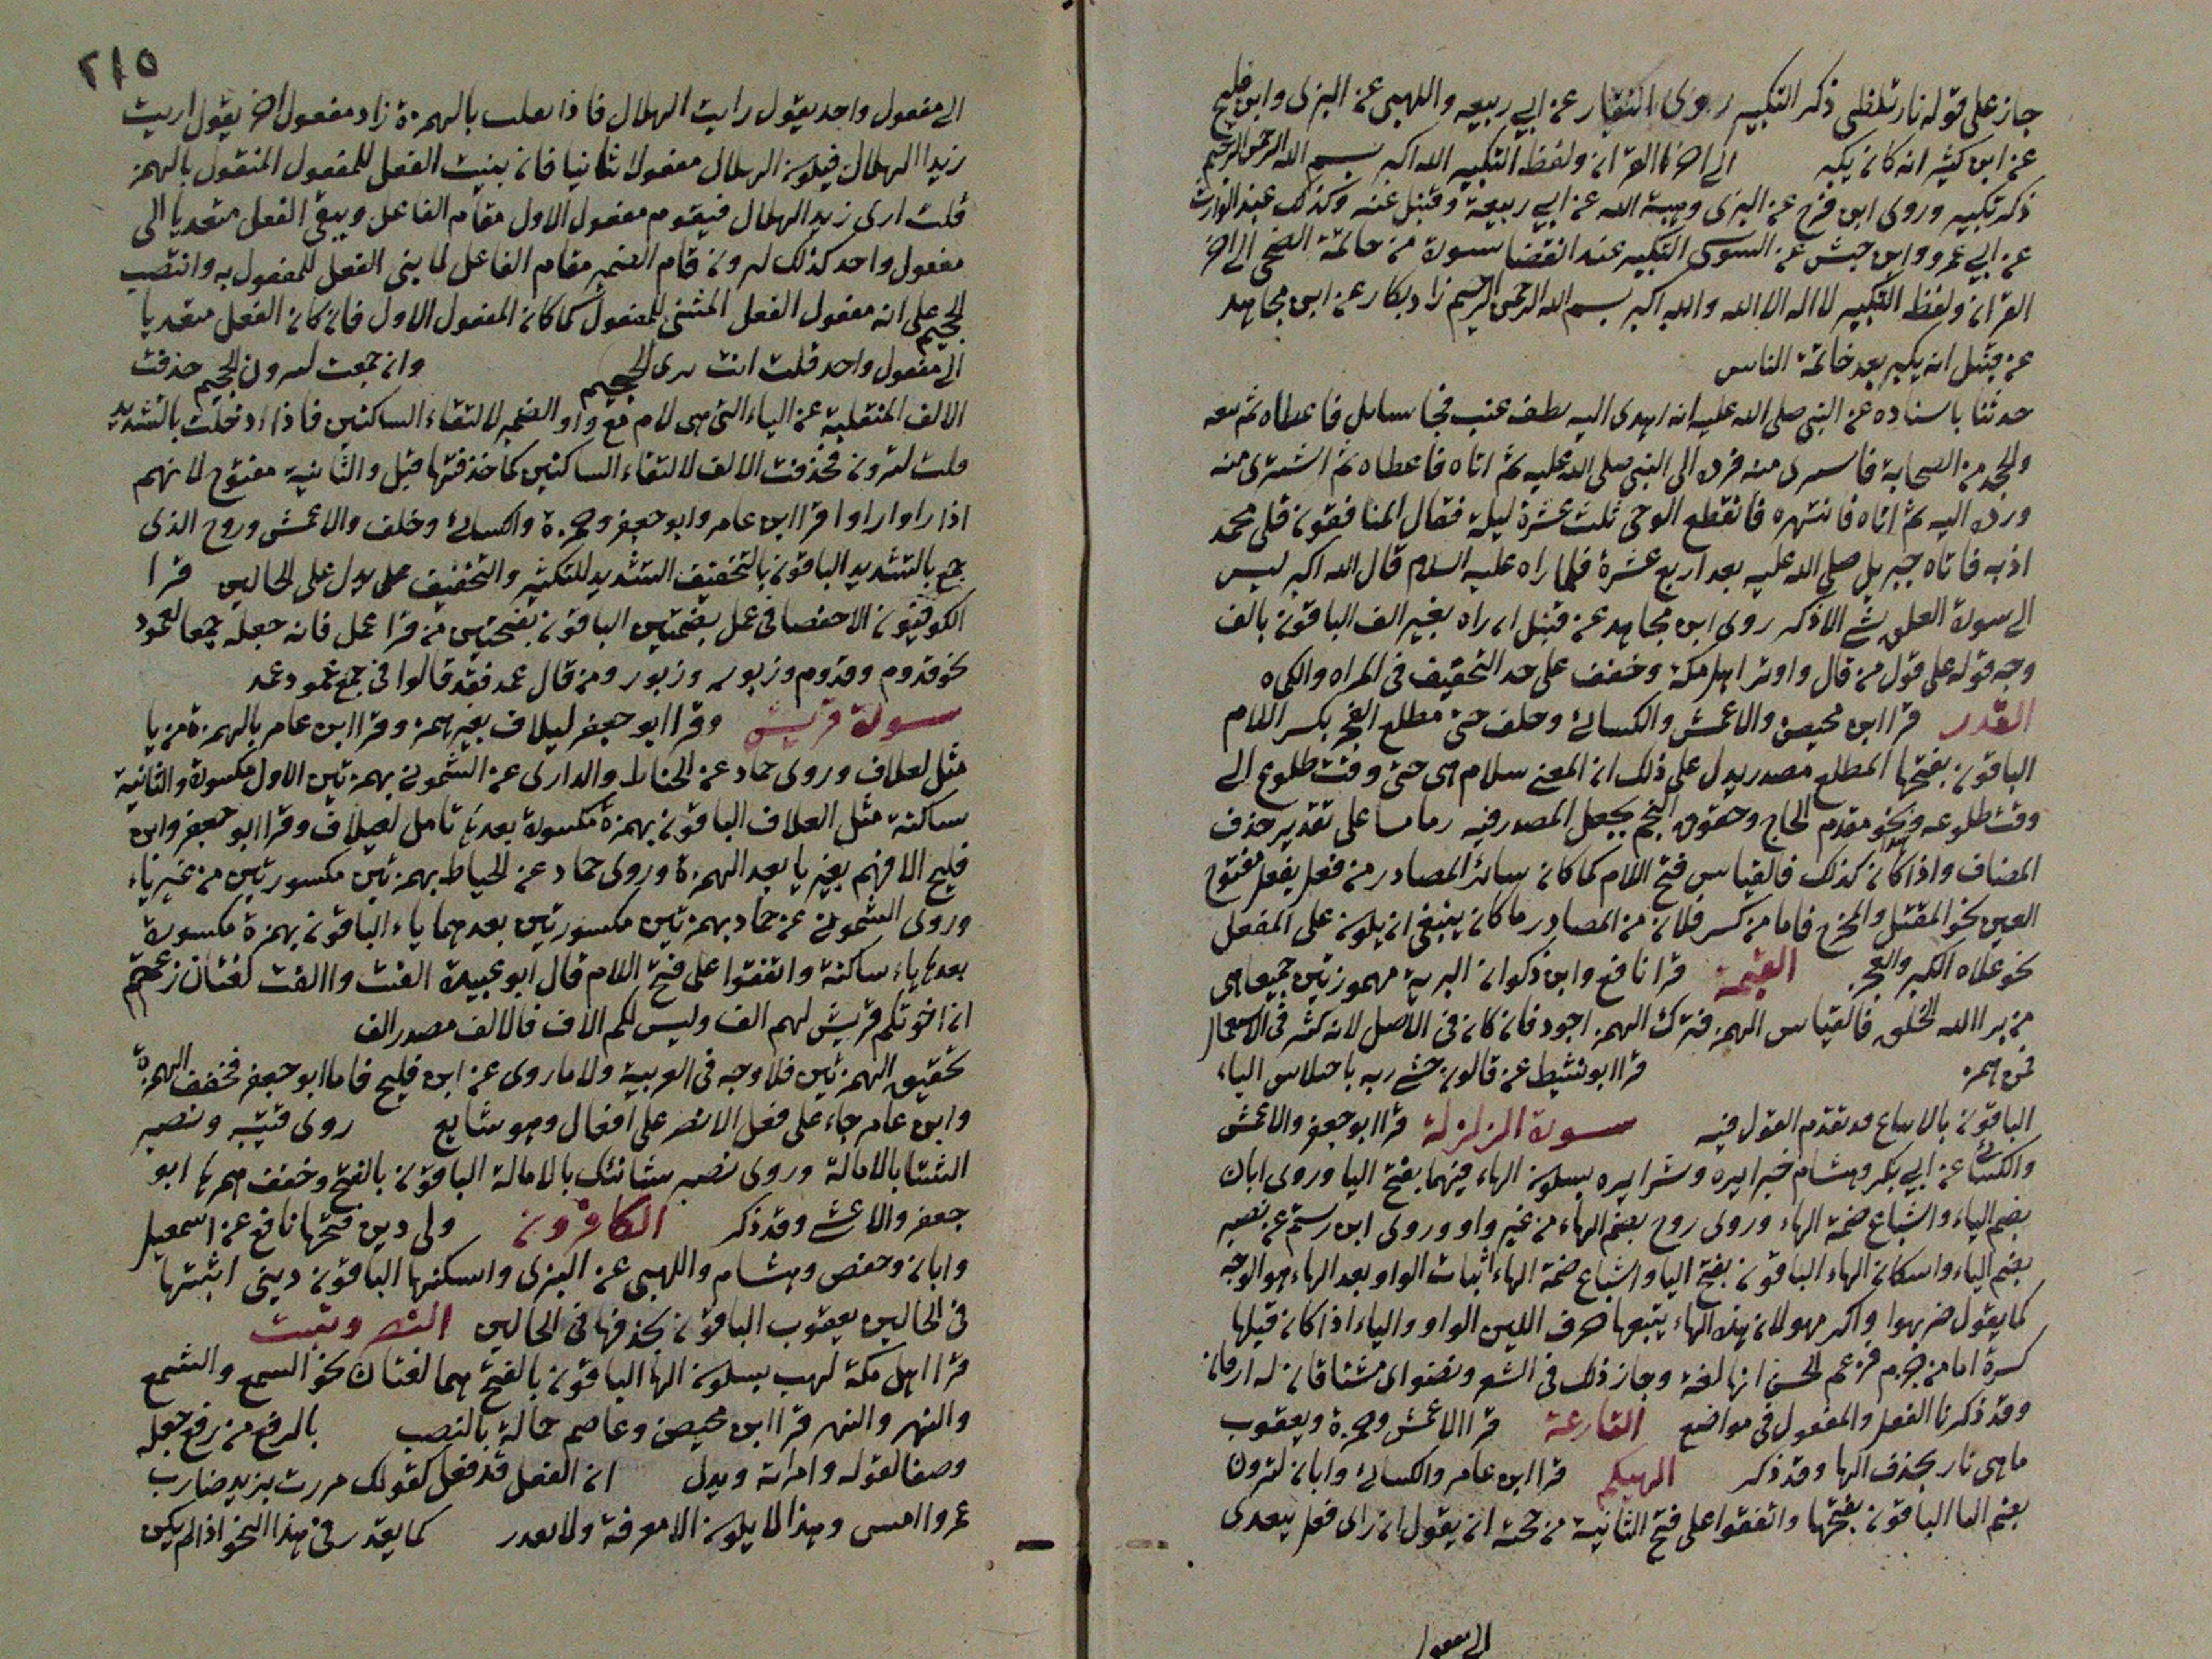 جاز على قوله نار تلظى ذكر التكبير روى النقار عن ابي ربيعه واللهبى عن البزى وابن فليح
عن ابن كثير انه كان يكبر الى اخر القران ولفظ التكبير الله اكبر بسم الله الرحمن الرحيم
ذكر تكبير وروى ابن فرح عن البزى وهبة الله عن ابي ربيعة وقنبل عنه وكذلك عبد الوارث
عن ابي عمرو وابن حبش عن السوسى التكبير عند انقضا سورة من خاتمة الضحى الى اخر
القران ولفظ التكبير لا اله الا الله والله اكبر بسم الله الرحمن الرحيم زاد بكار عن ابن مجاهد
عن قنبل انه يكبر بعد خاتمة الناس
حدثنا باسناده عن النبى صلى الله عليه انه اهدى اليه عنب فجا سايل فاعطاه ثم
من الصحابة منه فرده الى النبى صلى الله عليه ثم اتاه فاعطاه ثم اشترى منه
ورده اليه ثم اتاه فانتهره فانقطع الوحى ثلث عشرة ليلة فقال المنافقون قلى محمد
اذبه فاتاه جبريل صلى الله عليه بعد اربع عشرة فلما راه عليه السلام قال الله اكبر ليس
الى سورة العلق شى الا ذكر روى ابن مجاهد عن قنبل ان راه بغير الف الباقون بالف
وجه قوله على قول من قال واوتر اهل مكة وخفف على حد التخفيف فى المراه والكماه
القدر قرا ابن محيصن والاعمش والكسائى وخلف حتى مطلع الفجر بكسر اللام
الباقون بفتحها المطلع مصدر يدل على ذلك ان المعنى سلام هى حتى وقت طلوع الى
وقت طلوعه ونحو مقدم الحاج وخفوق النجم بجعل المصدر فيه على تقدير حذف
المضاف واذا كان كذلك فالقياس فتح اللام كما كان سائر المصادر من فعل يفعل مفتوح
العين نحو المقتل والمخرج فاما من كسر فلان من المصادر ما كان ينبغى ان يكون على المفعل
نحو علاه الكبر والعجز القيمة قرا نافع وابن ذكوان البرية مهموزتين جميعا هى
من برا الله الخلق فالقياس الهمز فترك الهمز اجود فان كان فى الاصل لانه كثر فى الاستعمال
فمن همز قرا ابو نشيط عن قالون خشى ربه باختلاس الهاء
الباقون بالاشباع قد تقدم القول فيه سورة الزلزلة قرا ابو جعفر والاعمش
والكسائى عن ابي بكر وهشام خيرا يره وشرا يره بسكون الهاء فيهما بفتح اليا وروى ابان
بضم الياء واشباع ضمة الهاء وروى روح بضم الهاء من غير واو وروى ابن رستم عن نصير
بضم الياء واسكان الهاء الباقون بفتح اليا واشباع ضمة الهاء اثبات الواو بعد الهاء هو الوجه
كما يقول ضربهوا واكرمهو لان هذه الهاء يتبعها حرف اللين الواو والياء اذا كان قبلها
كسرة اما من جزم فزعم الحسن انها لغة وجاز ذلك فى الشعر ونضواى مشتاقان له ارقان
وقد ذكرنا الفعل والمفعول فى مواضع القارعة قرا الاعمش وحمزة ويعقوب
ماهى نار بحذف الها وقد ذكر الهيكم قرا ابن عامر والكسائى وابان لترون
بضم التا الباقون بفتحها واتفقوا على فتح الثانية من حجة ان يقول ان راى فعل يتعدى
الى مفعول
٢١٥
الى مفعول واحد يقول رايت الهلال فاذا بالهمزة زاد مفعول اخر يقول اريت
زيدا الهلال فيكون الهلال مفعولا ثانيا فان بنيت الفعل للمفعول المنقول بالهمز
قلت ارى زيد الهلال فيقوم مفعول الاول مقام الفاعل ويبقى الفعل متعديا الى
مفعول واحد كذلك لترون قام الضمير مقام الفاعل لما بنى الفعل للمفعول به وانتصب
الجحيم على انه مفعول الفعل المثنى للمفعول كما كان المفعول الاول فان كان الفعل متعديا
الى مفعول واحد قلت انت ترى الجحيم وان جمعت لترون الجحيم حذفت
الالف المنقلبة عن الياء التى هى لام مع واو الضمير لالتقاء الساكنين فاذا ادخلت بالتشديد
قلت لترون فحذفت الالف لالتقاء الساكنين كما حذفتها قبل والثانية مفتوح لانهم
اذا راوا اروا قرا ابن عامر وابو جعفر وحمزة والكسائى وخلف والاعمش وروح الذى
جمع بالتشديد الباقون بالتخفيف التشديد للتكثير والتخفيف على يدل على الحالين قرا
الكوفيون الا حفصا فى عمل بضمتين الباقون بفتحتين من قرا عمل فانه جعله جمعا لعمود
نحو قدوم وقدوم وزبور وزبور ومن قال عمد فقد قالوا فى جمع عمود عمد
سورة قريش وقرا ابو جعفر ليلاف بغير همز وقرا ابن عامر بالهمزة من يا
مثل لعلاف وروى حماد عن الخياط والدارى عن الشمونى بهمزتين الاول مكسورة والثانية
ساكنة مثل العلاف الباقون بهمزة مكسورة بعدها ياء مثل لعيلاف وقرا ابو جعفر وابن
فليح الافهم بغير يا بعد الهمزة وروى حماد عن الخياط بهمزتين مكسورتين من غير ياء
وروى الشمونى عن حماد بهمزتين مكسورتين بعدهما ياء الباقون بهمزة مكسورة
بعدها ياء ساكنة واتفقوا على فتح اللام قال ابو عبيدة الفت واالفت لغتان زعمتم
ان اخوتكم قريش لهم الف وليس لكم الاف فالالف مصدر الف
تحقيق الهمزتين فلا وجه فى العربية ولا ما روى عن ابن فليح فاما ابو جعفر فخفف الهمزة
وابن عامر جاء على فعل الانصر على افعال وهو شايع روى قتيبة ونصير
الشتا بالامالة وروى نصير شانئك بالامالة الباقون بالفتح وخفف همزها ابو
جعفر والاعشى وقد ذكر الكافرون ولى دين فتحها نافع عن اسمعيل
وابان وحفص وهشام واللهبى عن البزى واسكنها الباقون دينى اثبتها
فى الحالين يعقوب الباقون بحذفها فى الحالين النصر وتبت
قرا اهل مكة لهب بسكون الها الباقون بالفتح هما لغتان نحو السمع والشمع
والنهر والنهر قرا ابن محيصن وعاصم حمالة بالنصب بالرفع من رفع جعله
وصفا لقوله وامراته ويدل ان الفعل قد فعل كقولك مررت بزيد ضارب
عمروا امس وهذا لا يكون الا معرفة ولا يقدر كما يقدر فى هذا النحو اذا لم يكن